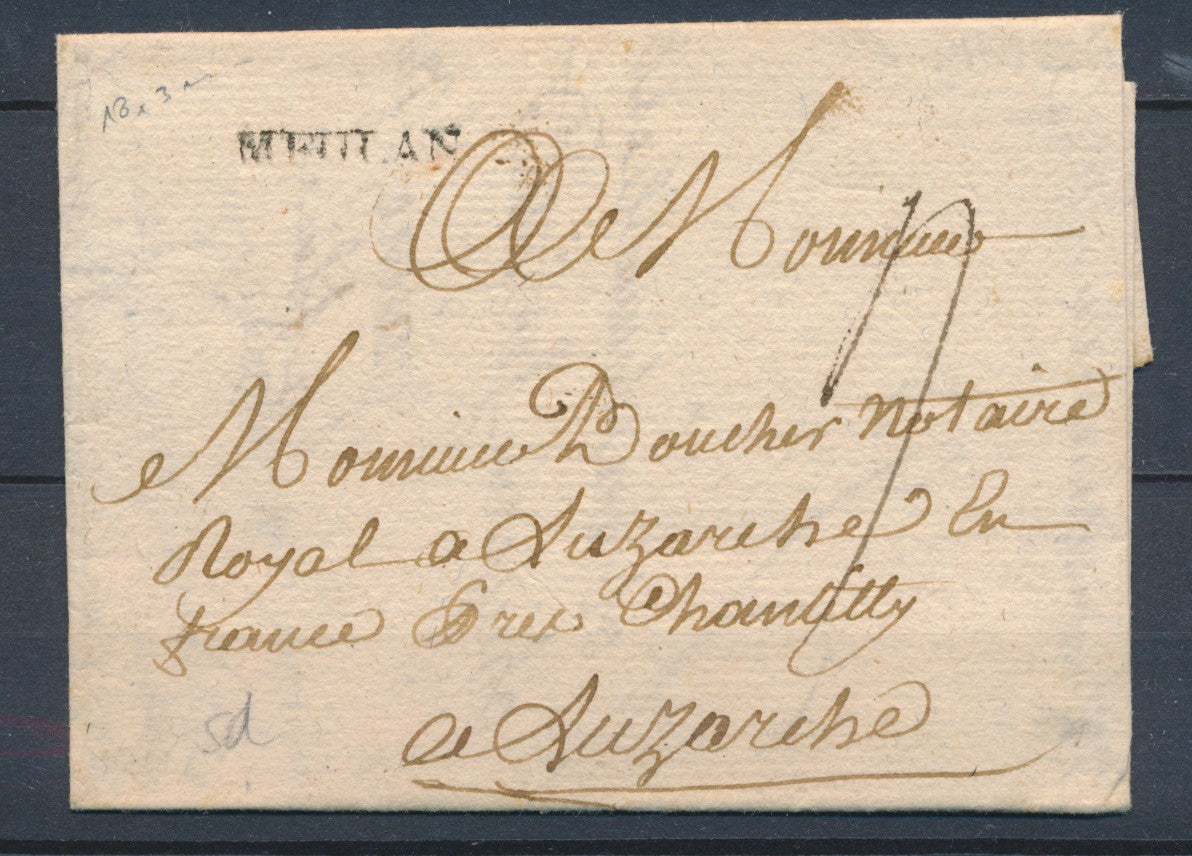 18 x 3
MEULAN
A Monsieur
Monsieur Boucher Notaire
Royal a Luzarche En
france Pres Chantilly
sd
a Luzarche